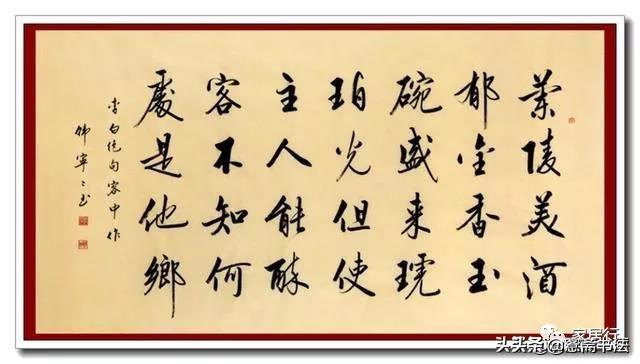 蘭陵美酒
郁金香玉
碗盛来琥
珀光但使
主人能醉
客不知何
處是他鄉
李白绝句客中作
寧〻书
家居行
头条 书法